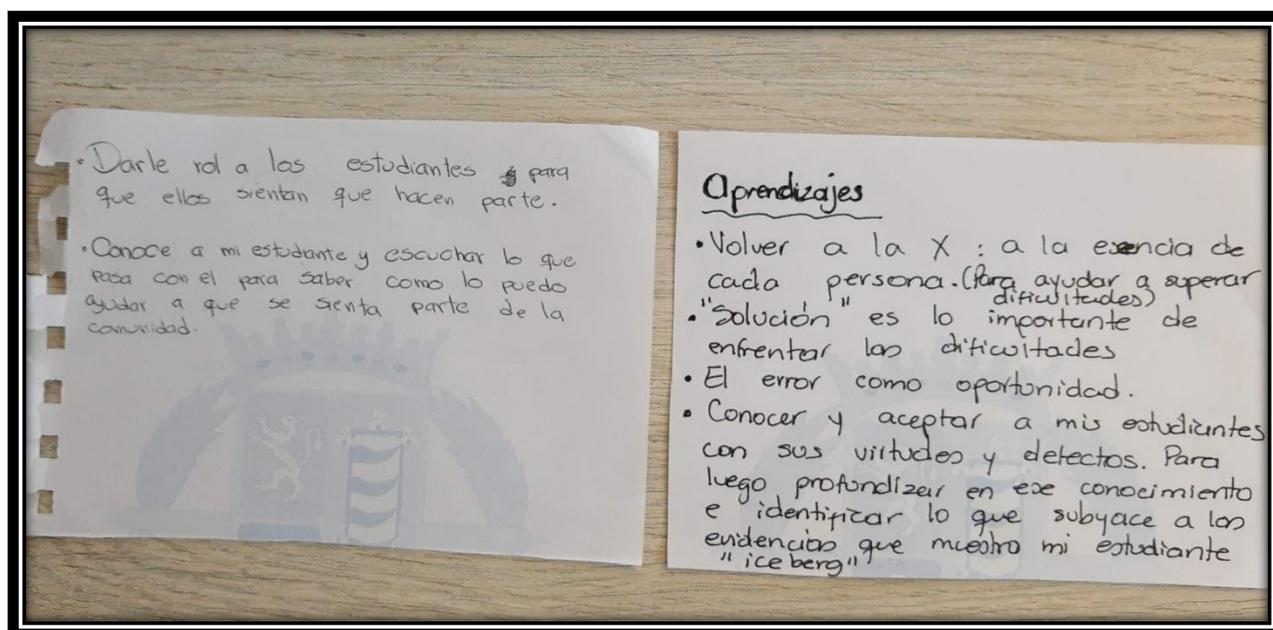 • Darle rol a los estudiantes para
que ellos sientan que hacen parte.
• Conoce a mi estudiante y escuchar lo que
pasa con el para saber como lo puedo
ayudar a que se sienta parte de la
comunidad.
Aprendizajes
• Volver a la X : a la esencia de
cada persona. (Para ayudar a superar
dificultades)
• "Solución" es lo importante de
enfrentar las dificultades
• El error como oportunidad.
• Conocer y aceptar a mis estudiantes
con sus virtudes y defectos. Para
luego profundizar en ese conocimiento
e identificar lo que subyace a las
evidencias que muestra mi estudiante
"ice berg"